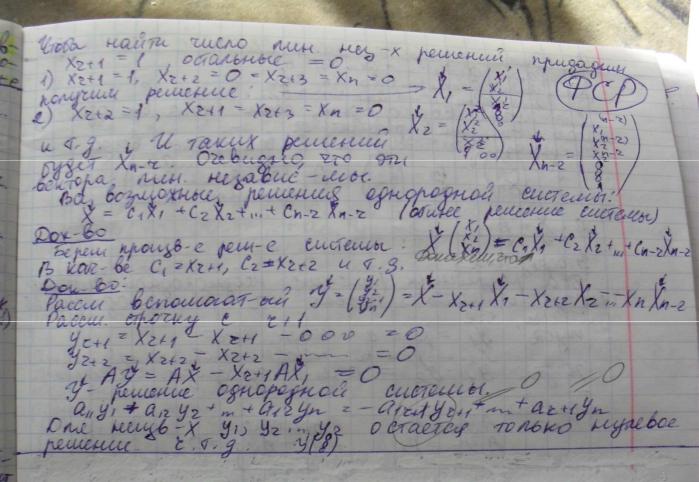 Чтобы найти число лин. нез-х решений придадим
x_{r+1} = 1, остальные = 0.
1) x_{r+1} = 1, x_{r+2} = 0 = x_{r+3} = x_n = 0
получим решение: X_1 = (x_1^1 x_2^1 x_r^1 1 0 0) ФСР
2) x_{r+2} = 1, x_{r+1} = x_{r+3} = x_n = 0 X_2 =
и т.д. И таких решений
будет X_{n-r}. Очевидно, что эти X_{n-r} =
вектора лин. независ-мы.
Все возможные решения однородной системы:
X = C_1X_1 + C_2X_2 + ... + C_{n-r}X_{n-r} (общее решение системы)
Док-во
Берем произв-е реш-е системы: X (x_1 x_2 x_n) = C_1X_1 + C_2X_2 + ... + C_{n-r}X_{n-r}
В кач-ве C_1 = x_{r+1}, C_2 = x_{r+2} и т.д.
Док-во:
Рассм вспомогат-ый Y = (y_1 y_2 y_n) = X - x_{r+1}X_1 - x_{r+2}X_2 ... - x_nX_{n-r}
Рассм. строчку с r+1
y_{r+1} = x_{r+1} - x_{r+1} - 0 0 0 = 0
y_{r+2} = x_{r+2} - x_{r+2} - ...... = 0
AY = AX - x_{r+1}AX_1 = 0
Y - решение однородной системы. = 0 = 0
a_{11}y_1 + a_{12}y_2 + ... + a_{1r}y_r = -a_{1r+1}y_{r+1} + ... + a_{r+1}y_n
Для y_1, y_2 ... y_r остаётся только нулевое
решение. ч.т.д.